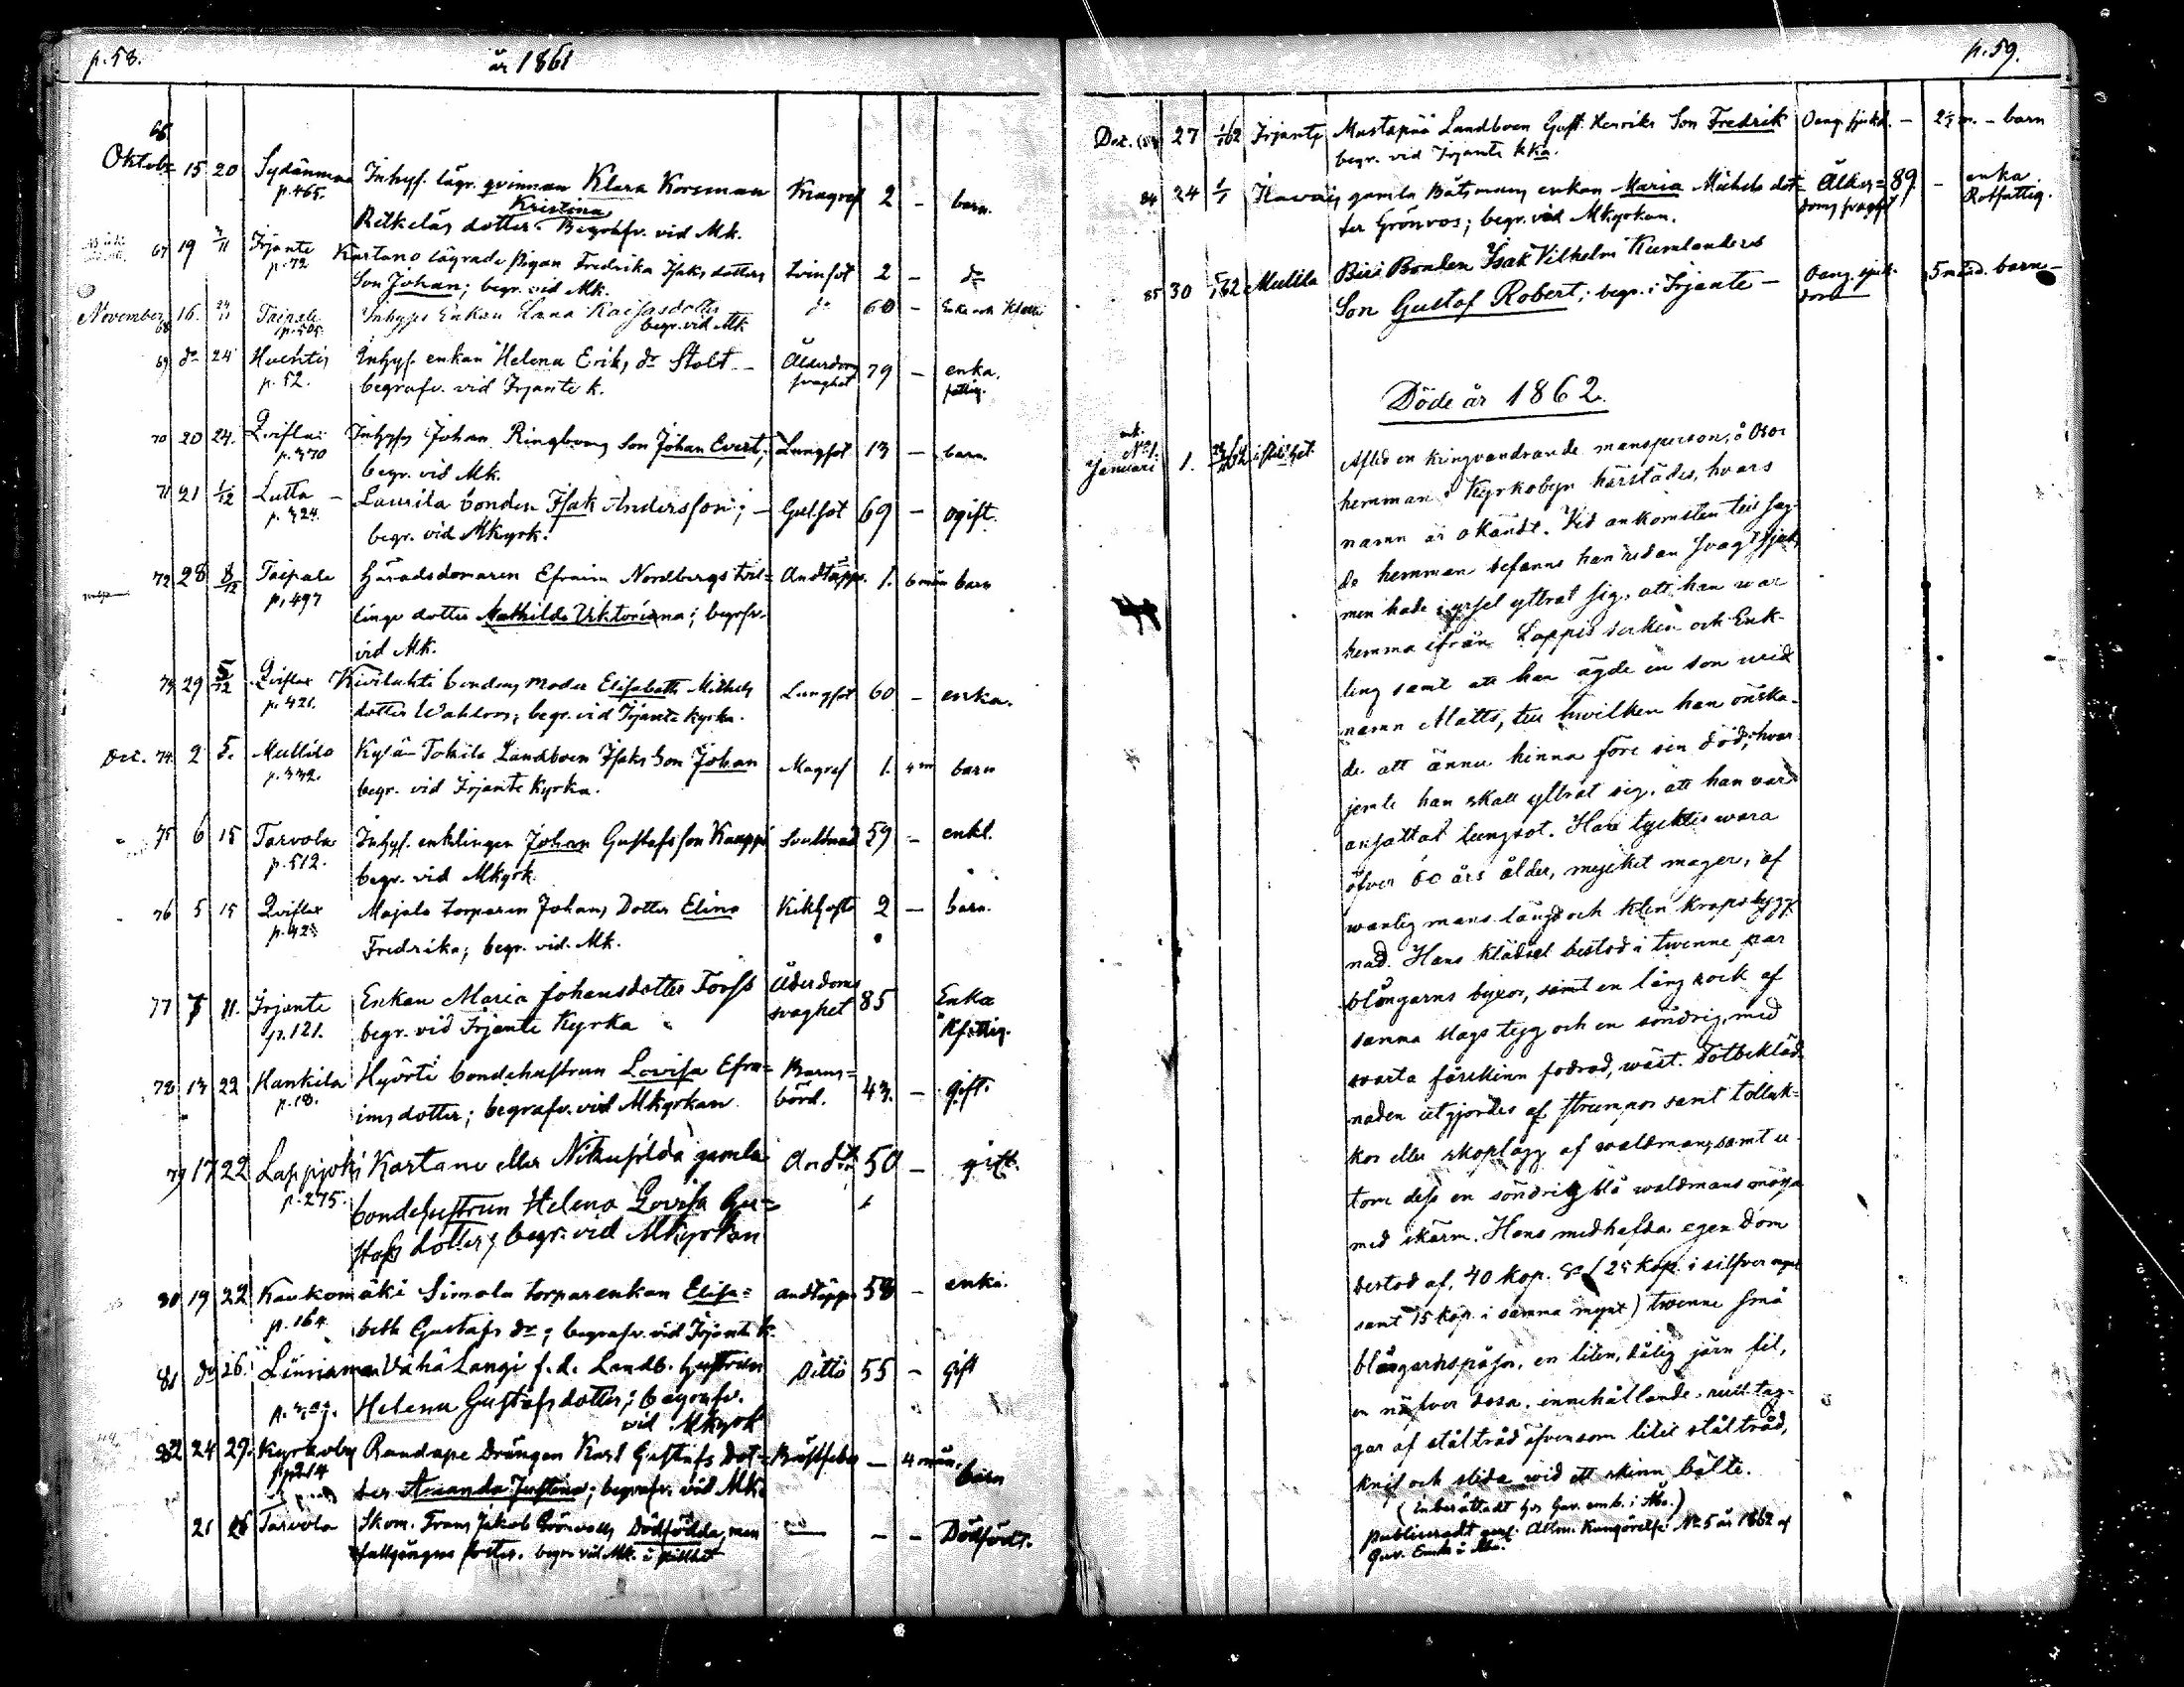 p.58.
år 1861
66
Oktobr 15 20 Sydänmaa Inhys. lägr. qvinnan Klara Korsman Magref 2 - barn.
p.465. Kristina
Retkeläs dotter. Begrafv. vid Mk.
67 19 3/11 Irjante Kartano lägrade pigan Fredrika Isaks dotters tvinsot 2 - do
p.72 Son Johan; begr. vid Mk.
November 16. 24/11 Taipale Inhyses Enkan Lana Kaisasdotter do 60 - Enka
68 p.505. begr. vid Mk
69 do 24 Huhtis Inhys. enkan Helena Eriks dr Stolt - Ålderdoms 79 - enka.
p.52. begrafv. vid Irjante k. svaghet fattig.
70 20 24. Qviflax Inhyses Johan Ringboms son Johan Evert; Lungsot 13 - barn
p.370 begr. vid Mk.
71 21 1/12 Lutta - Laurila bonden Isak Andersson; - Gulsot 69 - ogift.
p.324. begr. vid Mkyrk.
72 28 8/12 Taipale Häradsdomaren Efraim Nordbergs tvil= Andtäppa. 1. 6 mån barn
p.497 linge dotter Mathilda Viktoriana; begrfv.
vid Mk.
73 29 5/12 Qviflax Kivilahti bondens moder Elisabeth Michels Lungsot 60 - enka.
p.421. dotter Wahlroos; begr. vid Irjante kyrka.
Dec. 74 2 5. Mullila Kylä-Tokila Landboen Isaks Son Johan Magref 1. 4 m barn
p.332. begr. vid Irjante Kyrka.
75 6 15 Tarvola Inhys. enklingen Johan Gustafsson Kauppi Svullnad 59 - enkl.
p.512. begr. vid Mkyrk.
76 5 15 Qviflax Majala torparen Johans Dotter Elina Kikhosta 2 - barn.
p.423 Fredrika; begr. vid. Mk.
77 7 11. Irjante Enkan Maria Johansdotter Forss Ålderdoms 85 Enka
p.121. begr. vid Irjante Kyrka svaghet Kfattig.
78 13 22 Hankila Hyörti bondehustrun Lovisa Efra= Barns= 43. - gift.
p.18. imsdotter; begrafv. vid Mkyrkan börd.
79 17 22 Lappijoki Kartano eller Nikusilda gamla Andtn 50 - gift.
p.275. bondehustrun Helena Lovisa Gu=
stafs dotter; begr. vid Mkyrkan
80 19 22 Kaukomäki Simola torparenkan Elisa= andtäppa 58 - enka.
p.164 beth Gustafs dr; begrafv. vid Irjante k.
81 do 26. Linnamaa Vähä Langi f.d. Landb. hustrun Ditto 55 - Gift
Helena Gustafsdotter; begrafv.
vid Mkyrk
82 24 29. Kyrkoby Randape Drängen Karl Gustafs Dot= Bröstfeber - 4 mån. barn
p.214 ter Amanda Justina; begrafv. vid Mk.
21 26 Tarvola Skom. Frans Jakob Grönroos Dödfödda, men - - Dödfödt.
fullgångna foster. begr. vid Mk. i stillhet
p.59.
Dec. 27 1/62 Irjante Mustapää Landboen Gust. Henriks Son Fredrik Oang. sjukd. - 2½ m. - barn
begr. vid Irjante kka.
84 24 1/1 Ilavais gamla Båtsmans enkan Maria Michels dot= Ålder= 89. - enka
ter Grönroos; begr. vid Mkyrkan. doms svaghet Rotfattig.
85 30 5/1 62 Mullila Biri Bonden Isak Vilhelm Kumlanders Oang. sjuk- 5 månad. barn -
Son Gustaf Robert; begr. i Irjante - dom
Döde år 1862.
No 1.
Januari 1. i stillhet. Afled en kringvandrande mansperson, å Osor
hemman i Kyrkobyn härstädes, hvars
namn är okändt. Vid ankomsten till sag-
de hemman befanns han redan svagt sjuk,
men hade i yrsel yttrat sig, att han war
hemma ifrån Lappis socken och Enk-
ling samt att han ägde en son wid
namn Matts, till hwilken han önska-
de att ännu hinna före sin död; hvar-
jemte han skall yttrat sig, att han vard
ansattat lungsot. Han tycktes wara
öfver 60 års ålder, mycket mager, af
wanlig mans längd och klen kroppsbygg-
nad. Hans klädsel bestod i twenne par
blångarns byxor, samt en lång rock af
samma slags tyg och en söndrig, med
svarta fårskinn fodrad, wäst. Fotbekläd-
naden utgjordes af strumpor samt tolluk=
kor eller skoplagg af waldman, samt u-
tom dess en söndrig blå waldmans mössa
med skärm. Hans medhafda egendom
bestod af, 40 kop. Sr (25 kop. i silfver mynt
samt 15 kop. i samma mynt) twenne små
blångarnspåsar, en liten, dålig järn fil,
en näfver dosa, innehållande
gar af ståltråd äfvensom litet ståltråd,
knif och slida wid ett skinn bälte.
(Inberättadt hos Guv. emb. i Åbo.)
Publiceradt genl. Allm. Kungörelse No 5 år 1862 af
Guv. Emb. i Åbo.